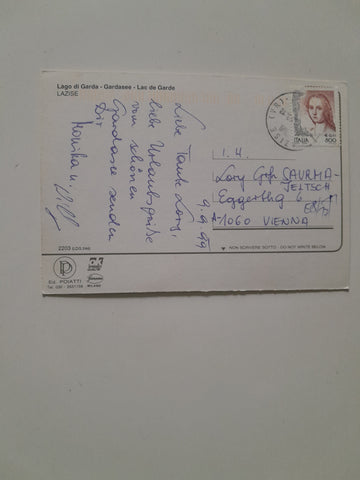 Lago di Garda - Gardasee - Lac de Garde
LAZISE
9.9.99
Liebe Tante Lory,
liebe Urlaubsgrüße
vom schönen
Gardasee senden
Dir
Monika u.
ITALIA
800
I. H.
Lory Gfn SAURMA-
JELTSCH
Eggerthg 6
A-1060 VIENNA
NON SCRIVERE SOTTO - DO NOT WRITE BELOW
2203
Ed. POIATTI
MILANO